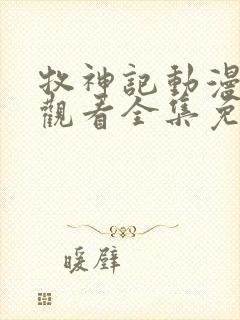 牧神記動漫
觀看全集免
暖壁